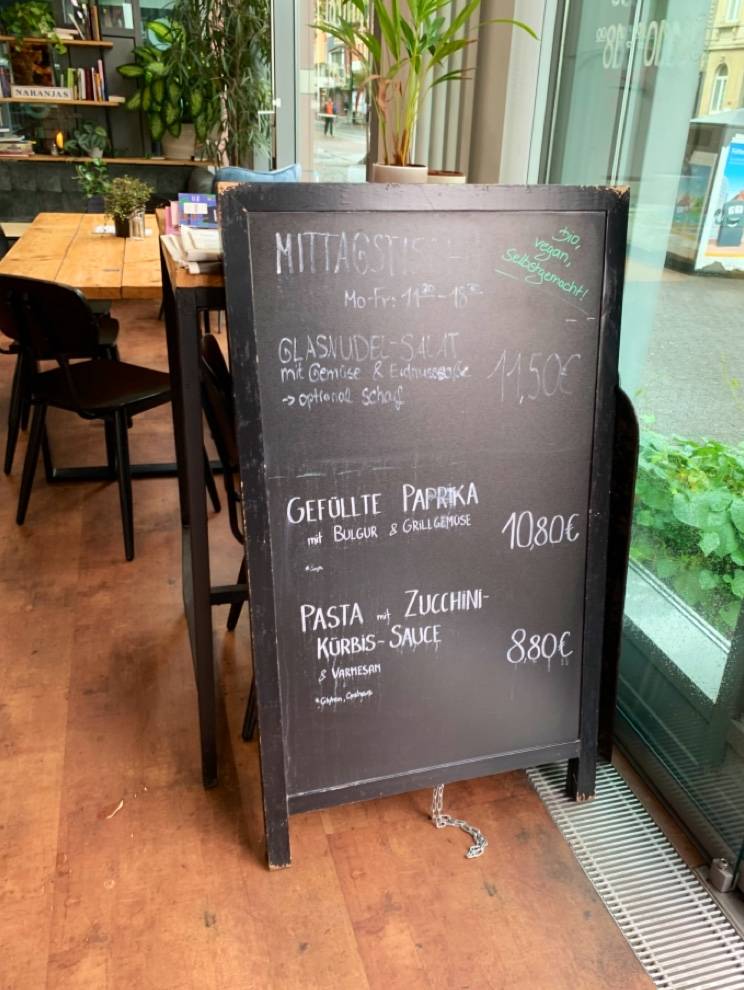 NARANJAS
MITTAGSTISCH
Bio,
vegan,
Selbstgemacht!
Mo-Fr: 11³⁰-
GLASNUDEL-SALAT
mit Gemüse & Erdnusssoße
11,50€
→ optional scharf
GEFÜLLTE PAPRIKA
mit BULGUR & GRILLGEMÜSE
10,80€
*Soja
PASTA mit ZUCCHINI-
KÜRBIS-SAUCE
8,80€
& VARMESAN
*Gluten, Cashews